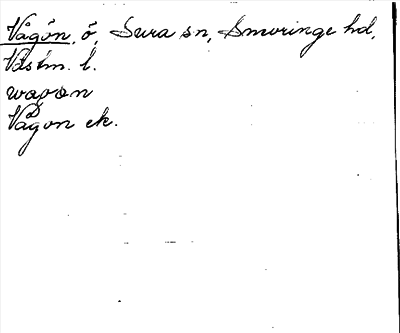 Vågön, ö, Sura sn, Snevringe hd,
Västm. l.
wagön
Vågön ek.